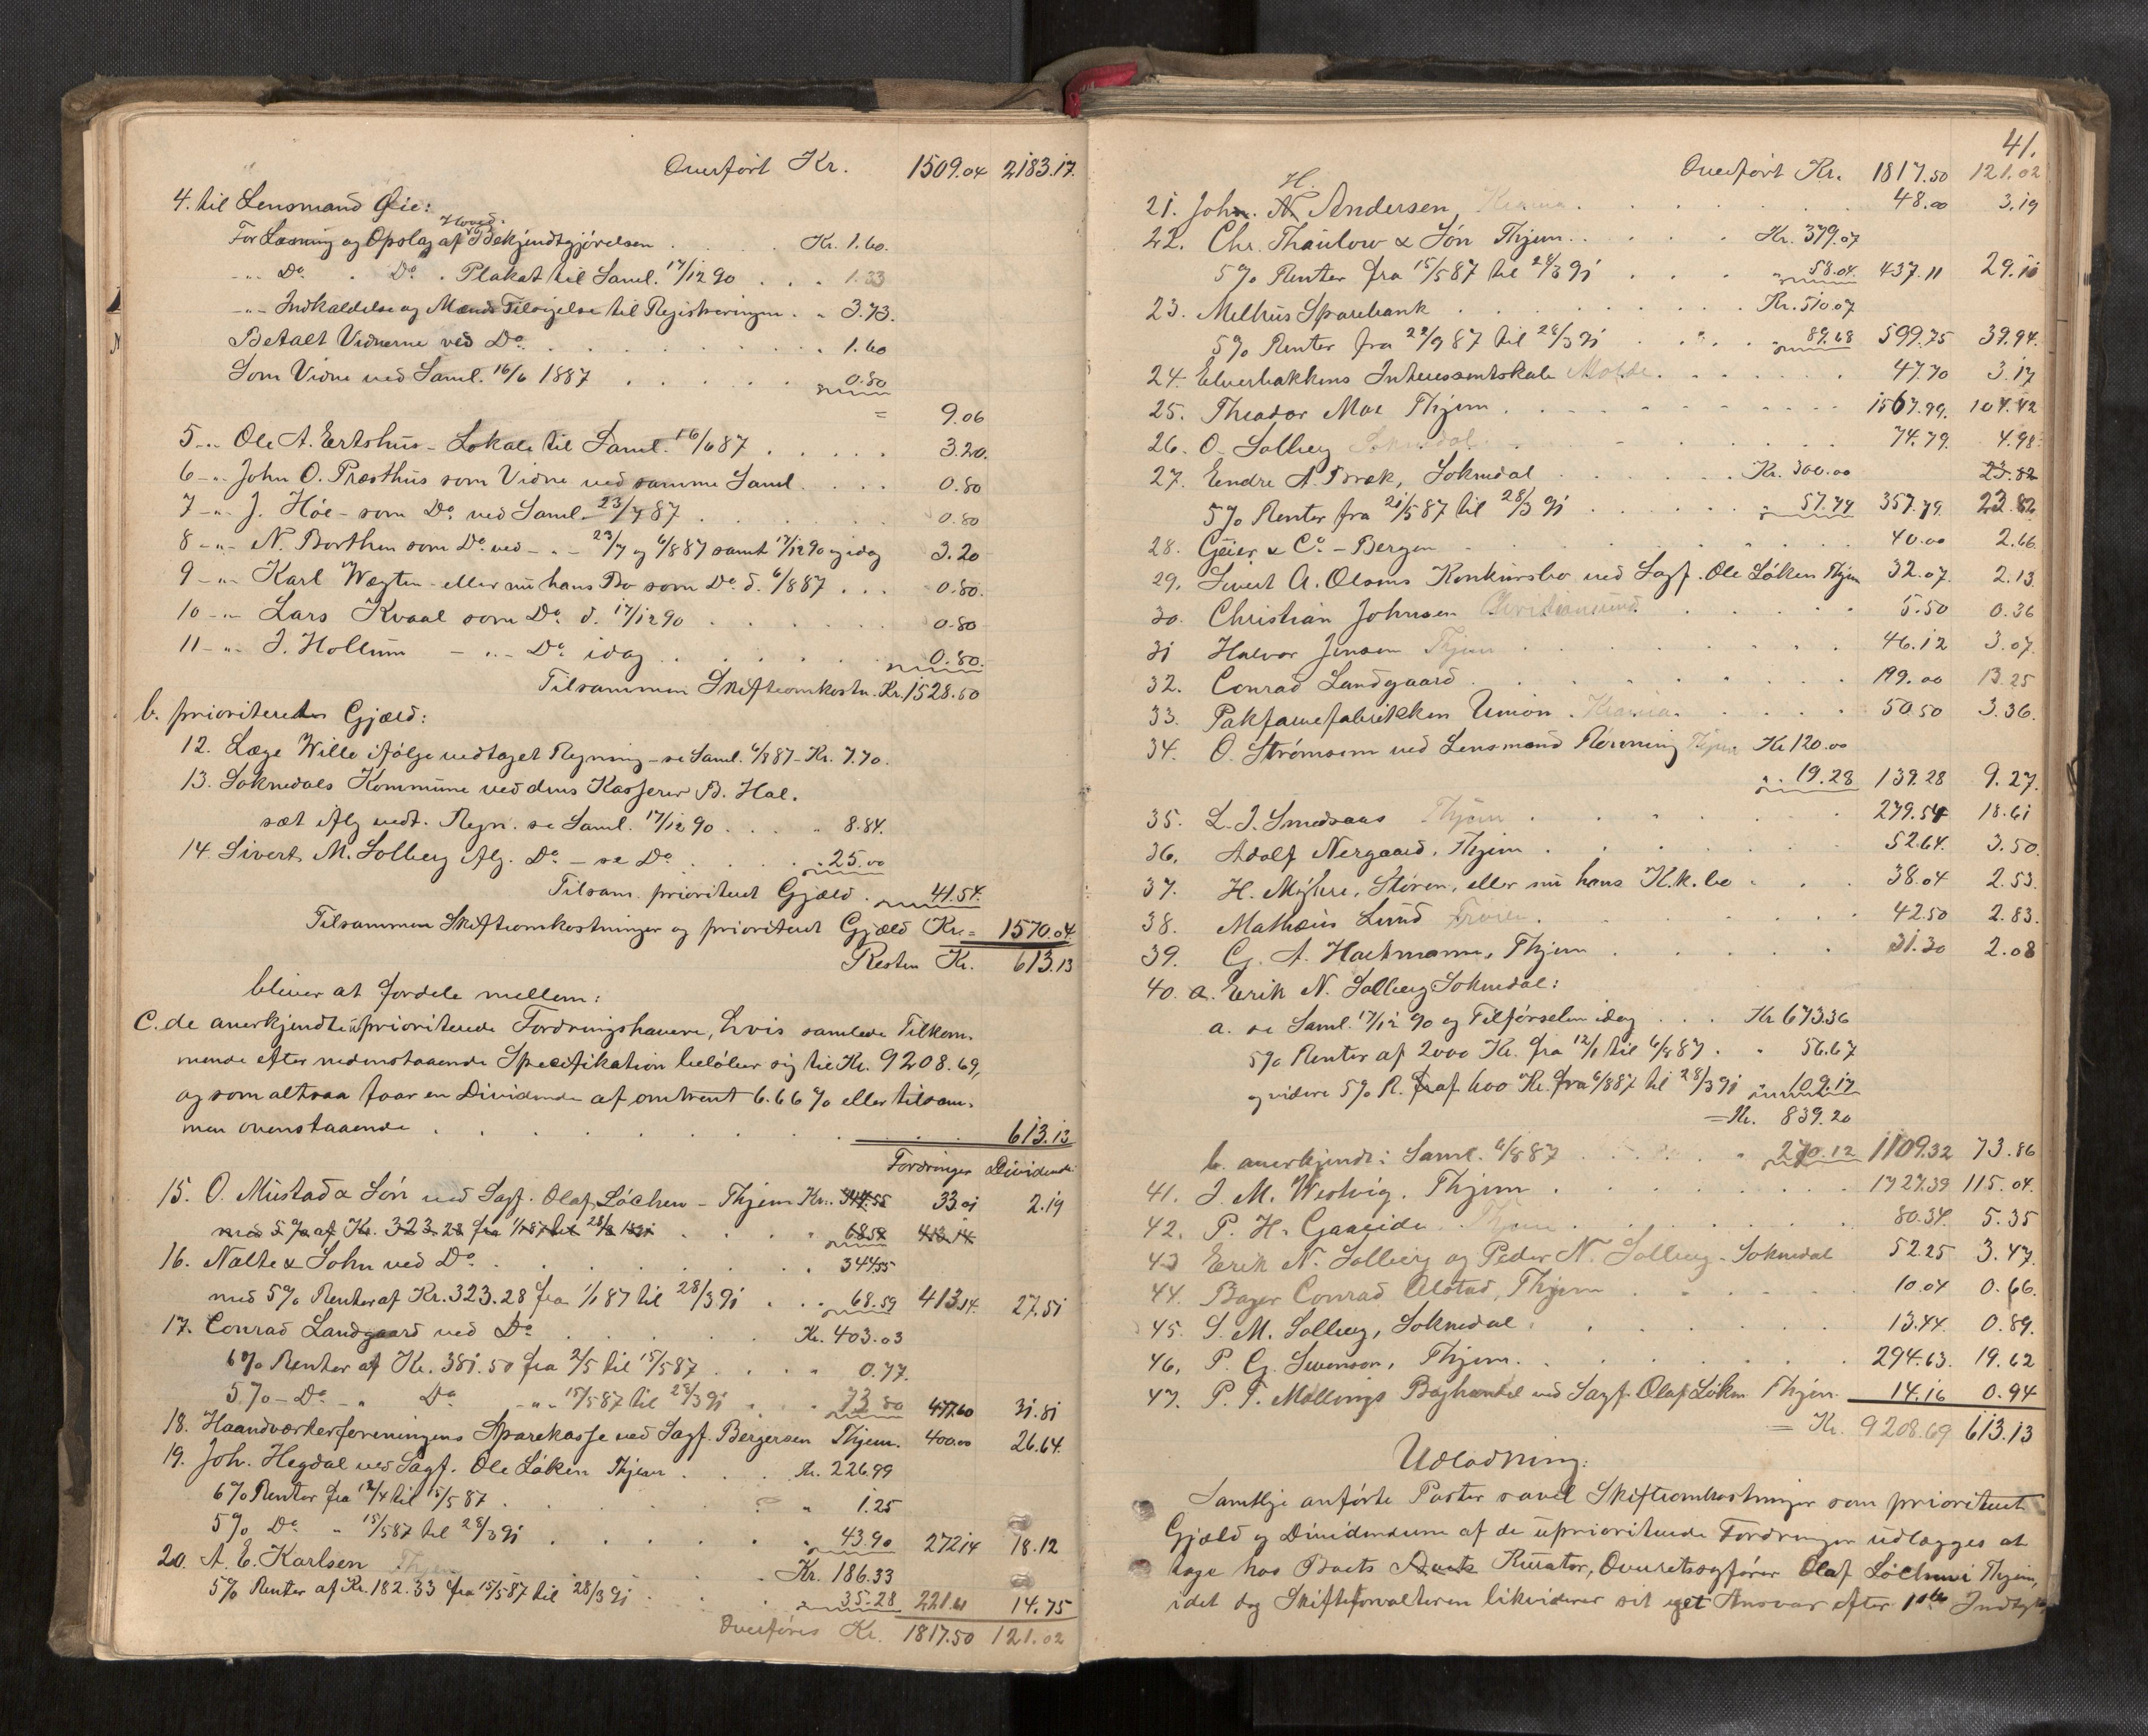 Overført Kr. 1509.04 2183.17.
4. til Lensmand Øie:
For Læsning og Opslag af Hoved-Bekjendtgjörelsen . . . Kr. 1.60.
-"- Do. . Do. . Plakat til Saml. 17/12 90 . . . 1.33
-"- Indkaldelse og Mænds Tilsigelse til Registreringen . " 3.73.
Betalt Vidnerne ved Do. . . . . . . . . 1.60
Som Vidne ved Saml. 16/6 1887 . . . . . 0.80
= 9.06
5 -"- Ole A. Ertshus - Lokale til Saml. 16/6 87 . . . . . 3.20.
6 -"- John O. Præsthus som Vidne ved samme Saml. . . . 0.80
7 -"- J. Höe - som Do. ved Saml. 23/7 87 . . . . . . 0.80
8 -"- N. Borthen som Do. ved -"- 23/7 og 6/8 87 samt 17/12 90 og idag 3.20
9 -"- Karl Wægten - eller nu hans Bo som Do. d. 6/8 87 . . . 0.80.
10 -"- Lars Kvaal som Do. d. 17/12 90 . . . . . . 0.80
11 -"- J. Hollum -"- Do. idag . . . . . . 0.80.
Tilsammen Skifteomkostn. Kr. 1528.50
b. prioriteret Gjæld:
12. Læge Wille ifölge vedtaget Regning - se Saml. 6/8 87 - Kr. 7.70.
13. Soknedals Kommune ved dens Kasserer B. Hal-
sæt iflg vedt. Regn. se Saml. 17/12 90 . . . " 8.84.
14. Sivert M. Solberg iflg. Do. - se Do. . . . . " 25.00
Tilsam. prioriteret Gjæld . 41.54.
Tilsammen Skifteomkostninger og prioriteret Gjæld Kr. = 1570.04
Resten Kr. 613.13
bliver at fordele mellem:
C. de anerkjendte uprioriterede Fordringshavere, hvis samlede Tilkom-
mende efter nedenstaaende Specifikation belöber sig til Kr. 9208.69,
og som altsaa faar en Dividende af omtrent 6.66 % eller tilsam-
men ovenstaaende . . . . . . . . . 613.13
Fordringer Dividende
15. O. Mustad & Sön ved Sagf. Olaf Löchen - Thjem Kr. 344.55 33.01 2.19
med 5 % af Kr. 323.28 fra 1/1 87 til 28/3 1891 . . . " 68.59 413.14
16. Nolte & Sohn ved Do. . . . . . . . . 344.55
med 5 % Renter af Kr. 323.28 fra 1/1 87 til 28/3 91 . . . 68.59 413.14. 27.51
17. Conrad Landgaard ved Do. . . . . . . Kr. 403.03
6 % Renter af Kr. 381.50 fra 2/5 til 15/5 87 . . . . " 0.77.
5 % - Do. - " Do. -"- 15/5 87 til 28/3 91 . . . 73.80 477.60 31.81
18. Haandværkerforeningens Sparekasse ved Sagf. Bergersen Thjem. 400.00 26.64.
19. Joh. Hegdal ved Sagf. Ole Löken Thjem . . . . Kr. 226.99
6 % Renter fra 12/4 til 15/5 87 . . . . . . " 1.25
5 % Do. " 15/5 87 til 28/3 91 . . . . . . " 43.90 272.14 18.12
20. A. E. Karlsen Thjem . . . . . . Kr. 186.33
5 % Renter af Kr. 182.33 fra 15/5 87 til 28/3 91 . . . . " 35.28 221.61 14.75
Overføres Kr. 1817.50 121.02
41.
Overfört Kr. 1817.50 121.02
21. John. H. Andersen, Krania . . . . . . . 48.00 3.19
22. Chr. Thaulow & Sön Thjem . . . . . Kr. 379.07
5 % Renter fra 15/5 87 til 28/3 91 . . . " 58.04. 437.11 29.11
23. Melhus Sparebank . . . . . . . . Kr. 510.07
5 % Renter fra 22/9 87 til 28/3 91 . . " . 89.68 599.75 39.94.
24. Elverbakkens Molde . . . . . . 47.70 3.17
25. Theodor Moe Thjem . . . . . . . . . 1567.99. 104.42
26. O. Solberg Soknedal . . . . . . . . 74.79. 4.98
27. Endre A. Bræk, Soknedal . . . . . . Kr. 300.00 23.82
5 % Renter fra 21/5 87 til 28/3 91 . . . . . . " 57.79 357.79. 23.82
28. Geier & Co. - Bergen . . . . . . . . 40.00 2.66
29. Sivert A. Olsens Konkursbo ved Sagf. Ole Löken Thjem 32.07. 2.13
30. Christian Johnsen Christiansund . . . . . 5.50 0.36
31 Halvor Jensen Thjem . . . . . . . 46.12 3.07.
32. Conrad Landgaard . . . . . . . . 199.00 13.25
33. Pakfarvefabrikken Union . Krania . . . . . 50.50 3.36.
34. O. Strömsem ved Lensmand Rönning Thjem Kr 120.00
" . 19.28 139.28 9.27.
35. L. J. Smedsaas Thjem . . . . . . . 279.54 18.61
36. Adolf Nergaard, Thjem . . . . . . . 52.64. 3.50
37. H. Myhre, Stören, eller nu hans K.k. bo . . . 38.04 2.53.
38. Mathæus Lund Frøien . . . . . . . 42.50 2.83.
39. G. A. Hartmann, Thjem . . . . . . 31.30 2.08
40. a. Erik N. Solberg Soknedal:
a. se Saml. 17/12 90 og Tilförselen idag . . . Kr 673.36
5 % Renter af 2000 Kr. fra 12/1 til 6/8 87 . " 56.67
og videre 5 % R. af 600 Kr. fra 6/8 87 til 28/3 91 " 109.17
= Kr. 839.20
b. anerkjendt i Saml. 6/8 87 . . . . . " 270.12 1109.32 73.86
41. J. M. Westvig. Thjem . . . . . . . . 1727.39 115.04.
42. P. H. Gaaeide . Thjem . . . . . . . 80.34. 5.35
43 Erik N. Solberg og Peder N. Solberg - Soknedal 52.25 3.47.
44. Bager Conrad Alstad, Thjem . . . . . . 10.04 0.66.
45. S. M. Solberg, Soknedal . . . . . . . 13.44. 0.89.
46. P. G. Swenson, Thjem. . . . . . . . 294.63. 19.62
47. P. T. Mallings Boghandel ved Sagf. Olaf Löken Thjem. 14.16 0.94
= Kr. 9208.69 613.13
Udlodning:
Samtlige anförte Poster savel Skifteomkostninger som prioriteret
Gjæld og Dividenderne af de uprioriterede Fordringer udlægges at
tage hos Boets Kurator, Overretssagförer Olaf Löchen i Thjem,
idet dog Skifteforvalteren likviderer sit eget Ansvar efter